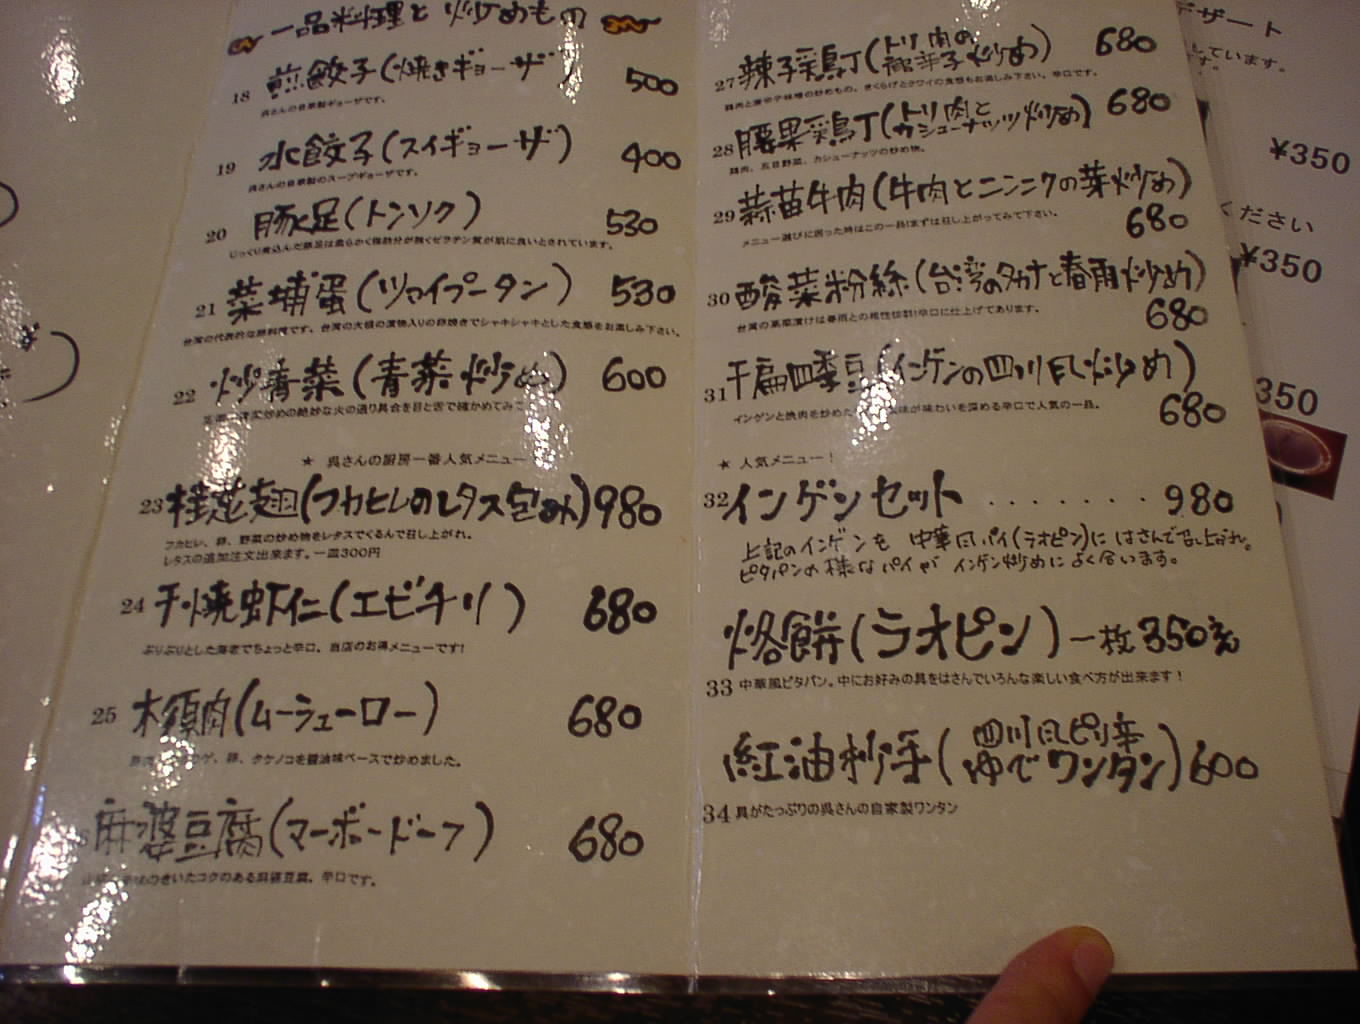 一品料理と炒めもの
18 煎餃子(焼きギョーザ) 500
呉さんの自家製ギョーザです。
19 水餃子(スイギョーザ) 400
呉さんの自家製のスープギョーザです。
20 豚足(トンソク) 530
じっくり煮込んだ豚足は柔らかく脂肪分が無くゼラチン質が肌に良いとされています。
21 菜埔蛋(ツァイプータン) 530
台湾の代表的な無料理です。台湾の大根の漬物入りの卵焼きでシャキシャキとした食感をお楽しみ下さい。
22 炒青菜(青菜炒め) 600
炒めの絶妙な火の通り具合を目と舌で確かめてみて
★ 呉さんの厨房一番人気メニュー
23 桂花翅(フカヒレのレタス包み) 980
フカヒレ、卵、野菜の炒め物をレタスでくるんで召し上がれ。
レタスの追加注文出来ます。一皿300円
24 干焼虾仁(エビチリ) 680
ぷりぷりとした海老でちょっと辛口。当店のお得メニューです!
25 木須肉(ムーシューロー) 680
ゲ、卵、タケノコを醤油味ベースで炒めました。
麻婆豆腐(マーボードーフ) 680
きいたコクのある麻婆豆腐。辛口です。
27 辣子鶏丁(トリ肉の唐辛子炒め) 680
鶏肉と唐辛子味噌の炒めもの。きくらげとクワイの食感もお楽しみ下さい。辛口です。
28 腰果鶏丁(トリ肉とカシューナッツ炒め) 680
鶏肉、五目野菜、カシューナッツの炒め物。
29 蒜苗牛肉(牛肉とニンニクの葉炒め)
680
メニュー選びに困った時はこの一品!まずは召し上がってみて下さい。
30 酸菜粉絲(台湾のタカナと春雨炒め)
680
台湾の高菜漬けは春雨との相性抜群!辛口に仕上げてあります。
31 干扁四季豆(インゲンの四川風炒め)
680
インゲンと挽肉を炒めた 味が味わいを深める辛口で人気の一品。
★ 人気メニュー!
32 インゲンセット ........ 980
上記のインゲンを 中華風パイ(ラオピン)に はさんで召し上がれ。
ピタパンの様なパイが インゲン炒めによく合います。
烙餅(ラオピン) 一枚350
33 中華風ピタパン。中にお好みの具をはさんでいろんな楽しい食べ方が出来ます!
紅油抄手(四川風ピリ辛ゆでワンタン) 600
34 具がたっぷりの呉さんの自家製ワンタン
デザート
しています。
¥350
ください
¥350
350